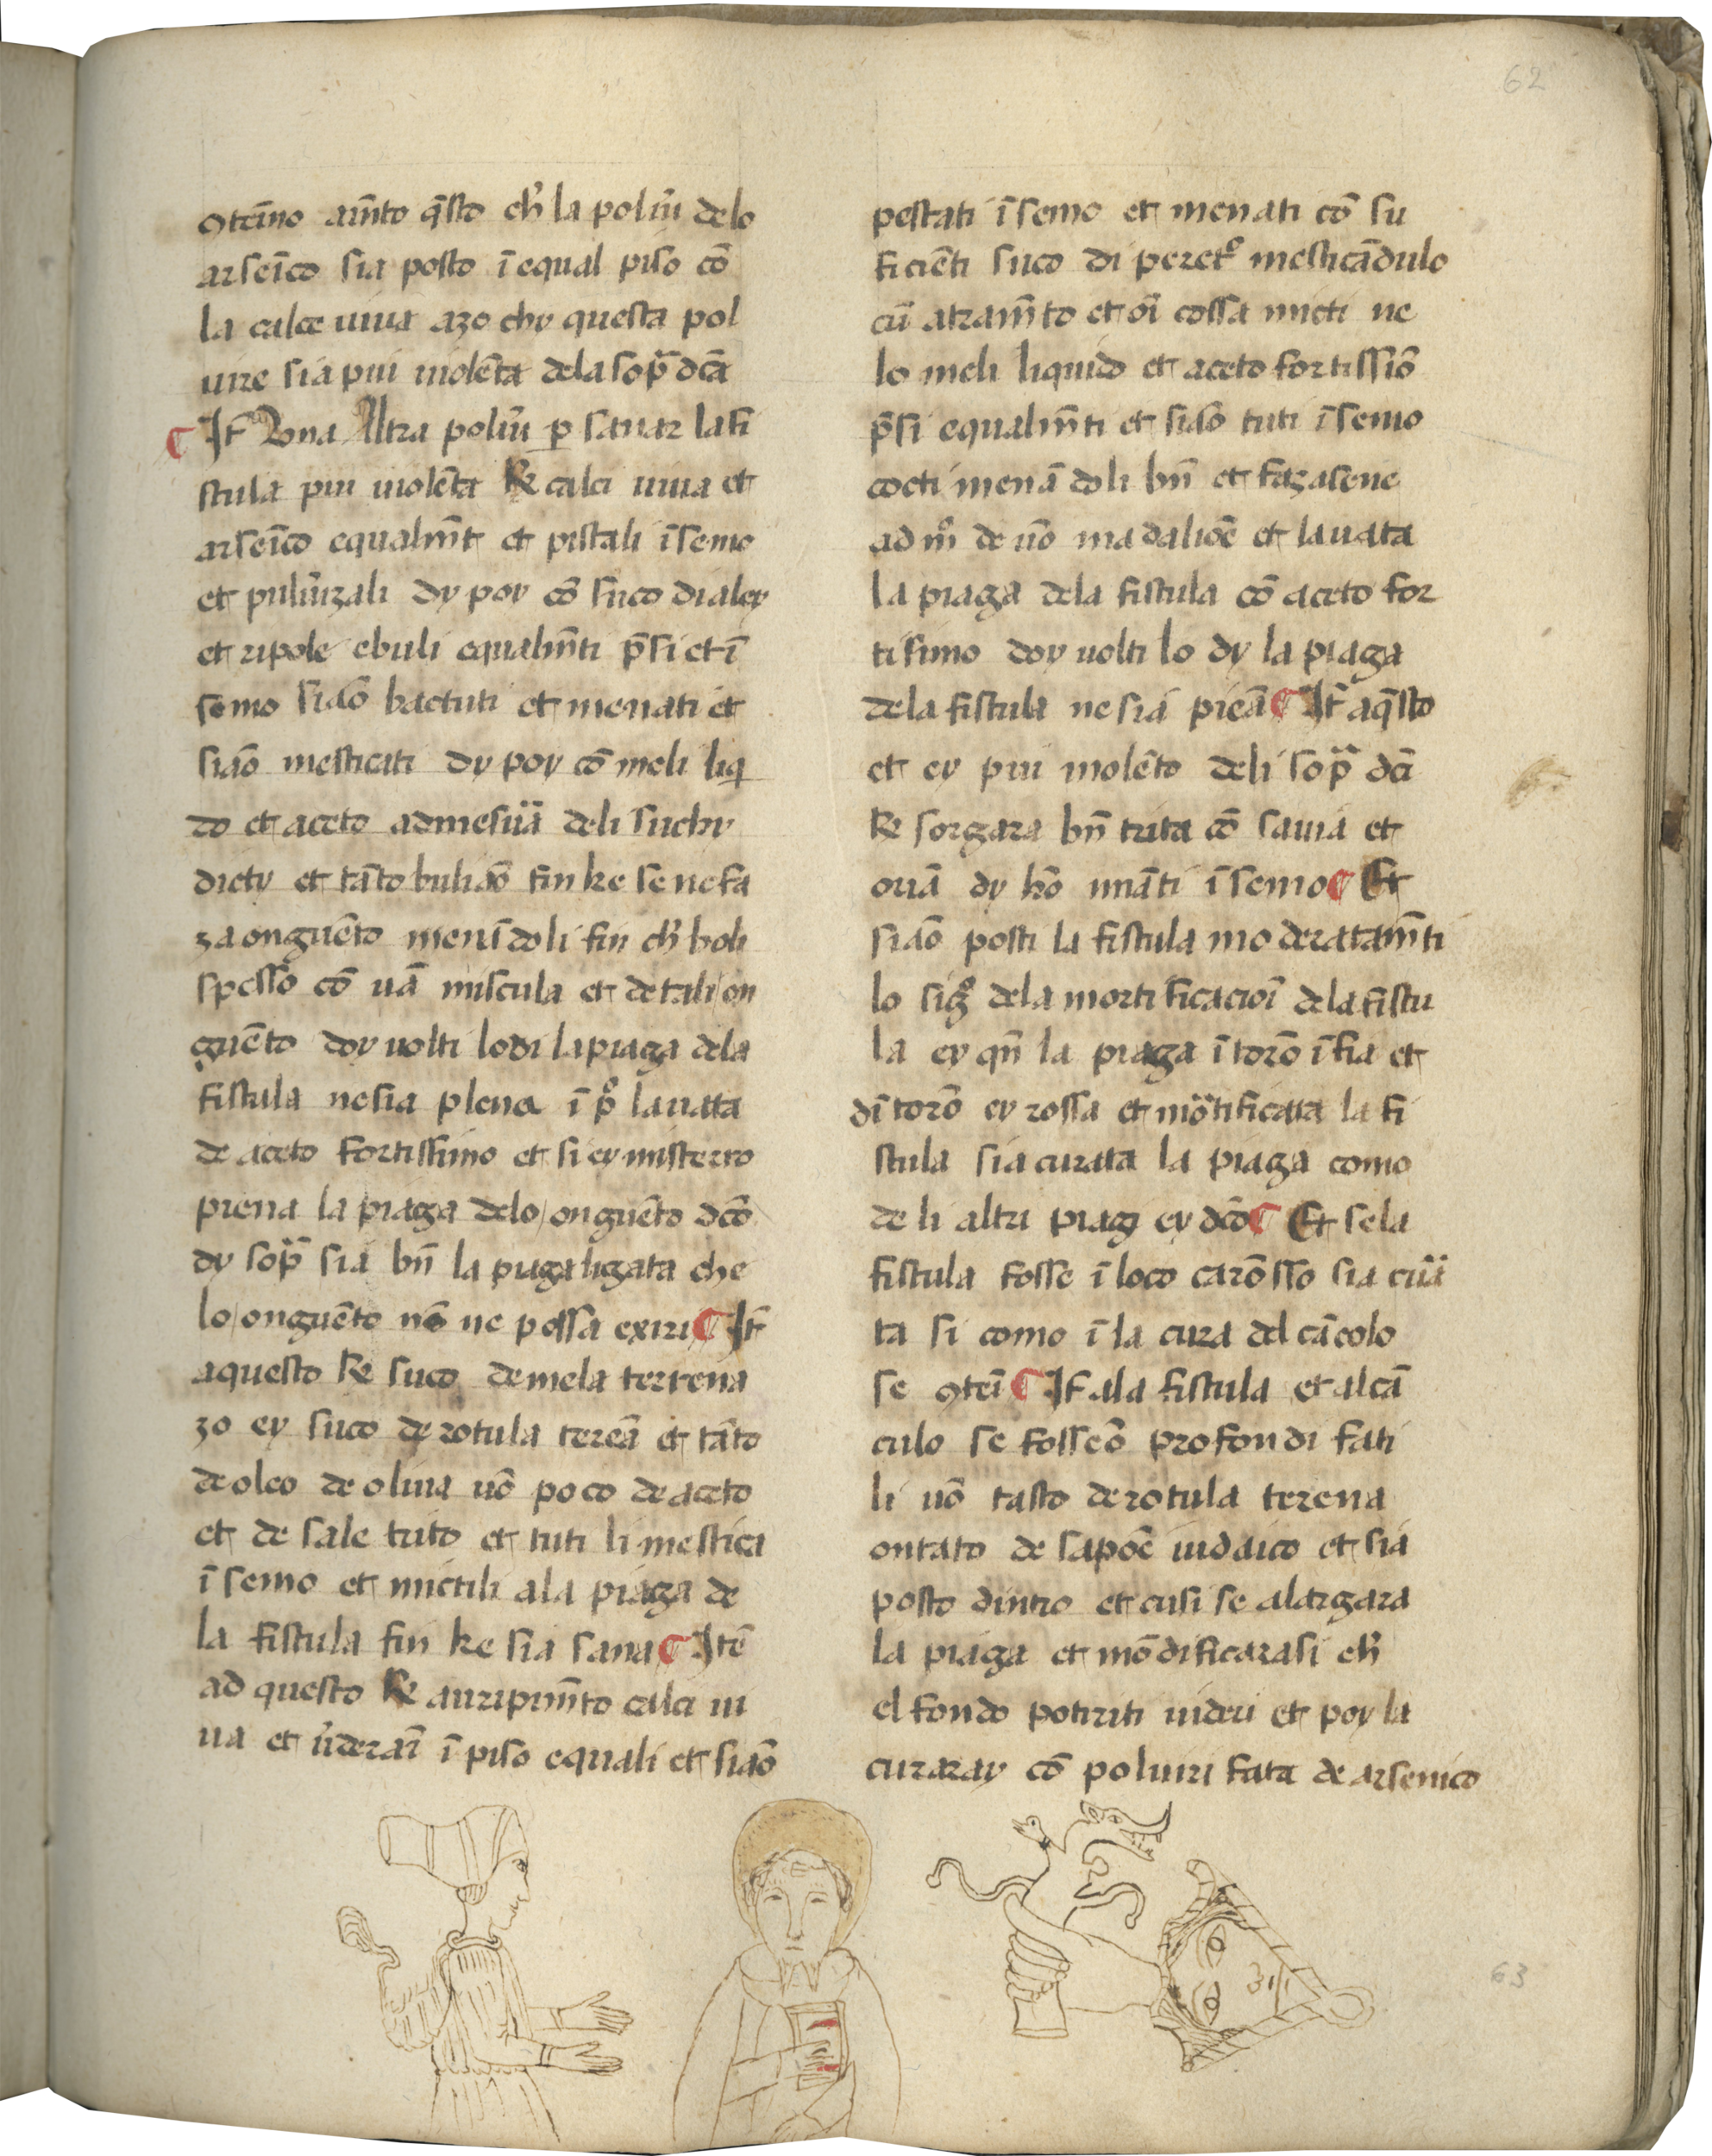 62
ꝯteīno am̄to q̄sto ch̄ la poluū delo
arseīco sia posto ī equal piso cō
la calce uiua azo chy questa pol
uire sia piu uiolēta dela sop̄ dc̄a
¶ It̄ Vna Altra poluū ꝑ sanar la fi
stula piu uiolēta ℞ calci uiua et
arseīco equalm̄t et pistali īsemo
et puluīzali dy poy cō suco di aley
et ripole ebuli equalm̄ti p̄si et ī
semo siāo bactuti et menati et
siāo mesticati dy poy cō meli liq
do et aceto admesuā deli suchy
dicty et tāto buliāo fin ke se ne fa
za onguēto menādoli fin ch̄ boli
spesso cō uā miscula et de tali on
guēto doy uolti lo di la piaga dela
fistula ne sia plena ī p̊ lauata
de aceto fortissimo et si ey misterro
prena la piaga delo onguēto dc̄o
dy sop̄ sia bn̄ la piaga ligata che
lo onguēto nō ne possa exiri ¶ It̄
aquesto ℞ suco de mela terrena
zo ey suco de rotula tereā et tāto
de oleo de oliua uō poco de aceto
et de sale tuto et tuti li mestica
īsemo et mictili ala piaga de
la fistula fin ke sia sana ¶ Itē
ad questo ℞ auripim̄to calci ui
ua et ūderaī ī piso equali et siāo
pestati īsemo et menati cō su
ficiēti suco di peret̊ mesticādulo
cū atram̄to et oī cossa micti ne
lo meli liquido et aceto fortissiō
p̄si equalm̄ti et siāo tuti īsemo
cocti menādoli bn̄ et fazasene
ad m̊ de uō madaliōe et lauata
la piaga dela fistula cō aceto for
tisimo doy uolti lo dy la piaga
dela fistula ne sia pieā ¶ It̄ aq̄sto
et ey piu uiolēto deli sop̄ dc̄i
℞ sorgara bn̄ trita cō sauia et
oriā dy hō unāti īsemo ¶ Et
siāo posti la fistula moderatam̄ti
lo sig̊ dela mortificacioī dela fistu
la ey qn̄ la piaga ītorō īfia et
dītorō ey rossa et mortificata la fi
stula sia curata la piaga como
de li altri piagi ey dc̄o ¶ Et se la
fistula fosse ī loco carōsso sia cuā
ta si como ī la cura del cācolo
se ꝯteī ¶ It̄ ala fistula et al cā
culo se fosseō profondi fati
li uō tasto de rotula terena
ontato de sapoē iudaico et sia
posto dintro et cusi se alargara
la piaga et mōdificarasi ch̄
el fondo potiriti uideri et poy la
curaray cō poluiri fata de arsenico
63